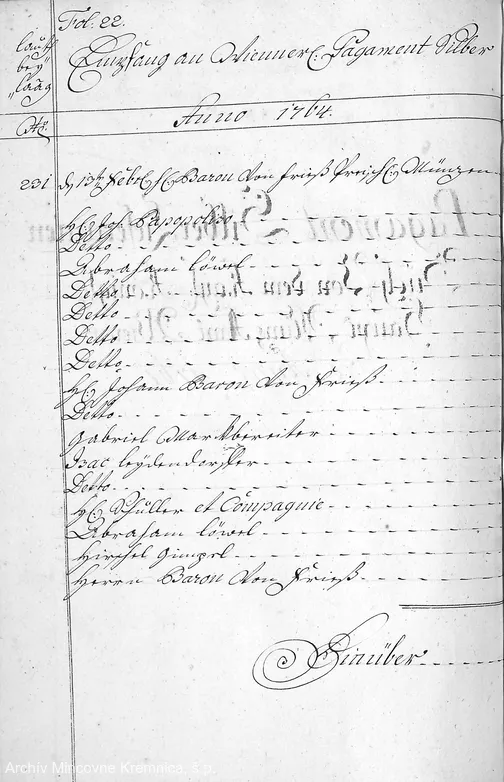 Fol. 22.
laut
bey
laag
No:
Empfang an Wienner: Pagament Silber
Anno 1764.
231 d 13 Febr: H: Baron Von Frieß Preisch: Münzen
H: Jos: Papopolico
Detto
Abraham Löwel
Detto
Detto
Detto
Detto
H: Johann Baron Von Frieß
Detto
Gabriel Markbereiter
Isac Leydendorffer
Detto
H: Schuller et Compagnie
Abraham Löwel
Hirschel Gimpel
Herrn Baron Von Frieß
Hinüber
Archív Mincovne Kremnica, š.p.